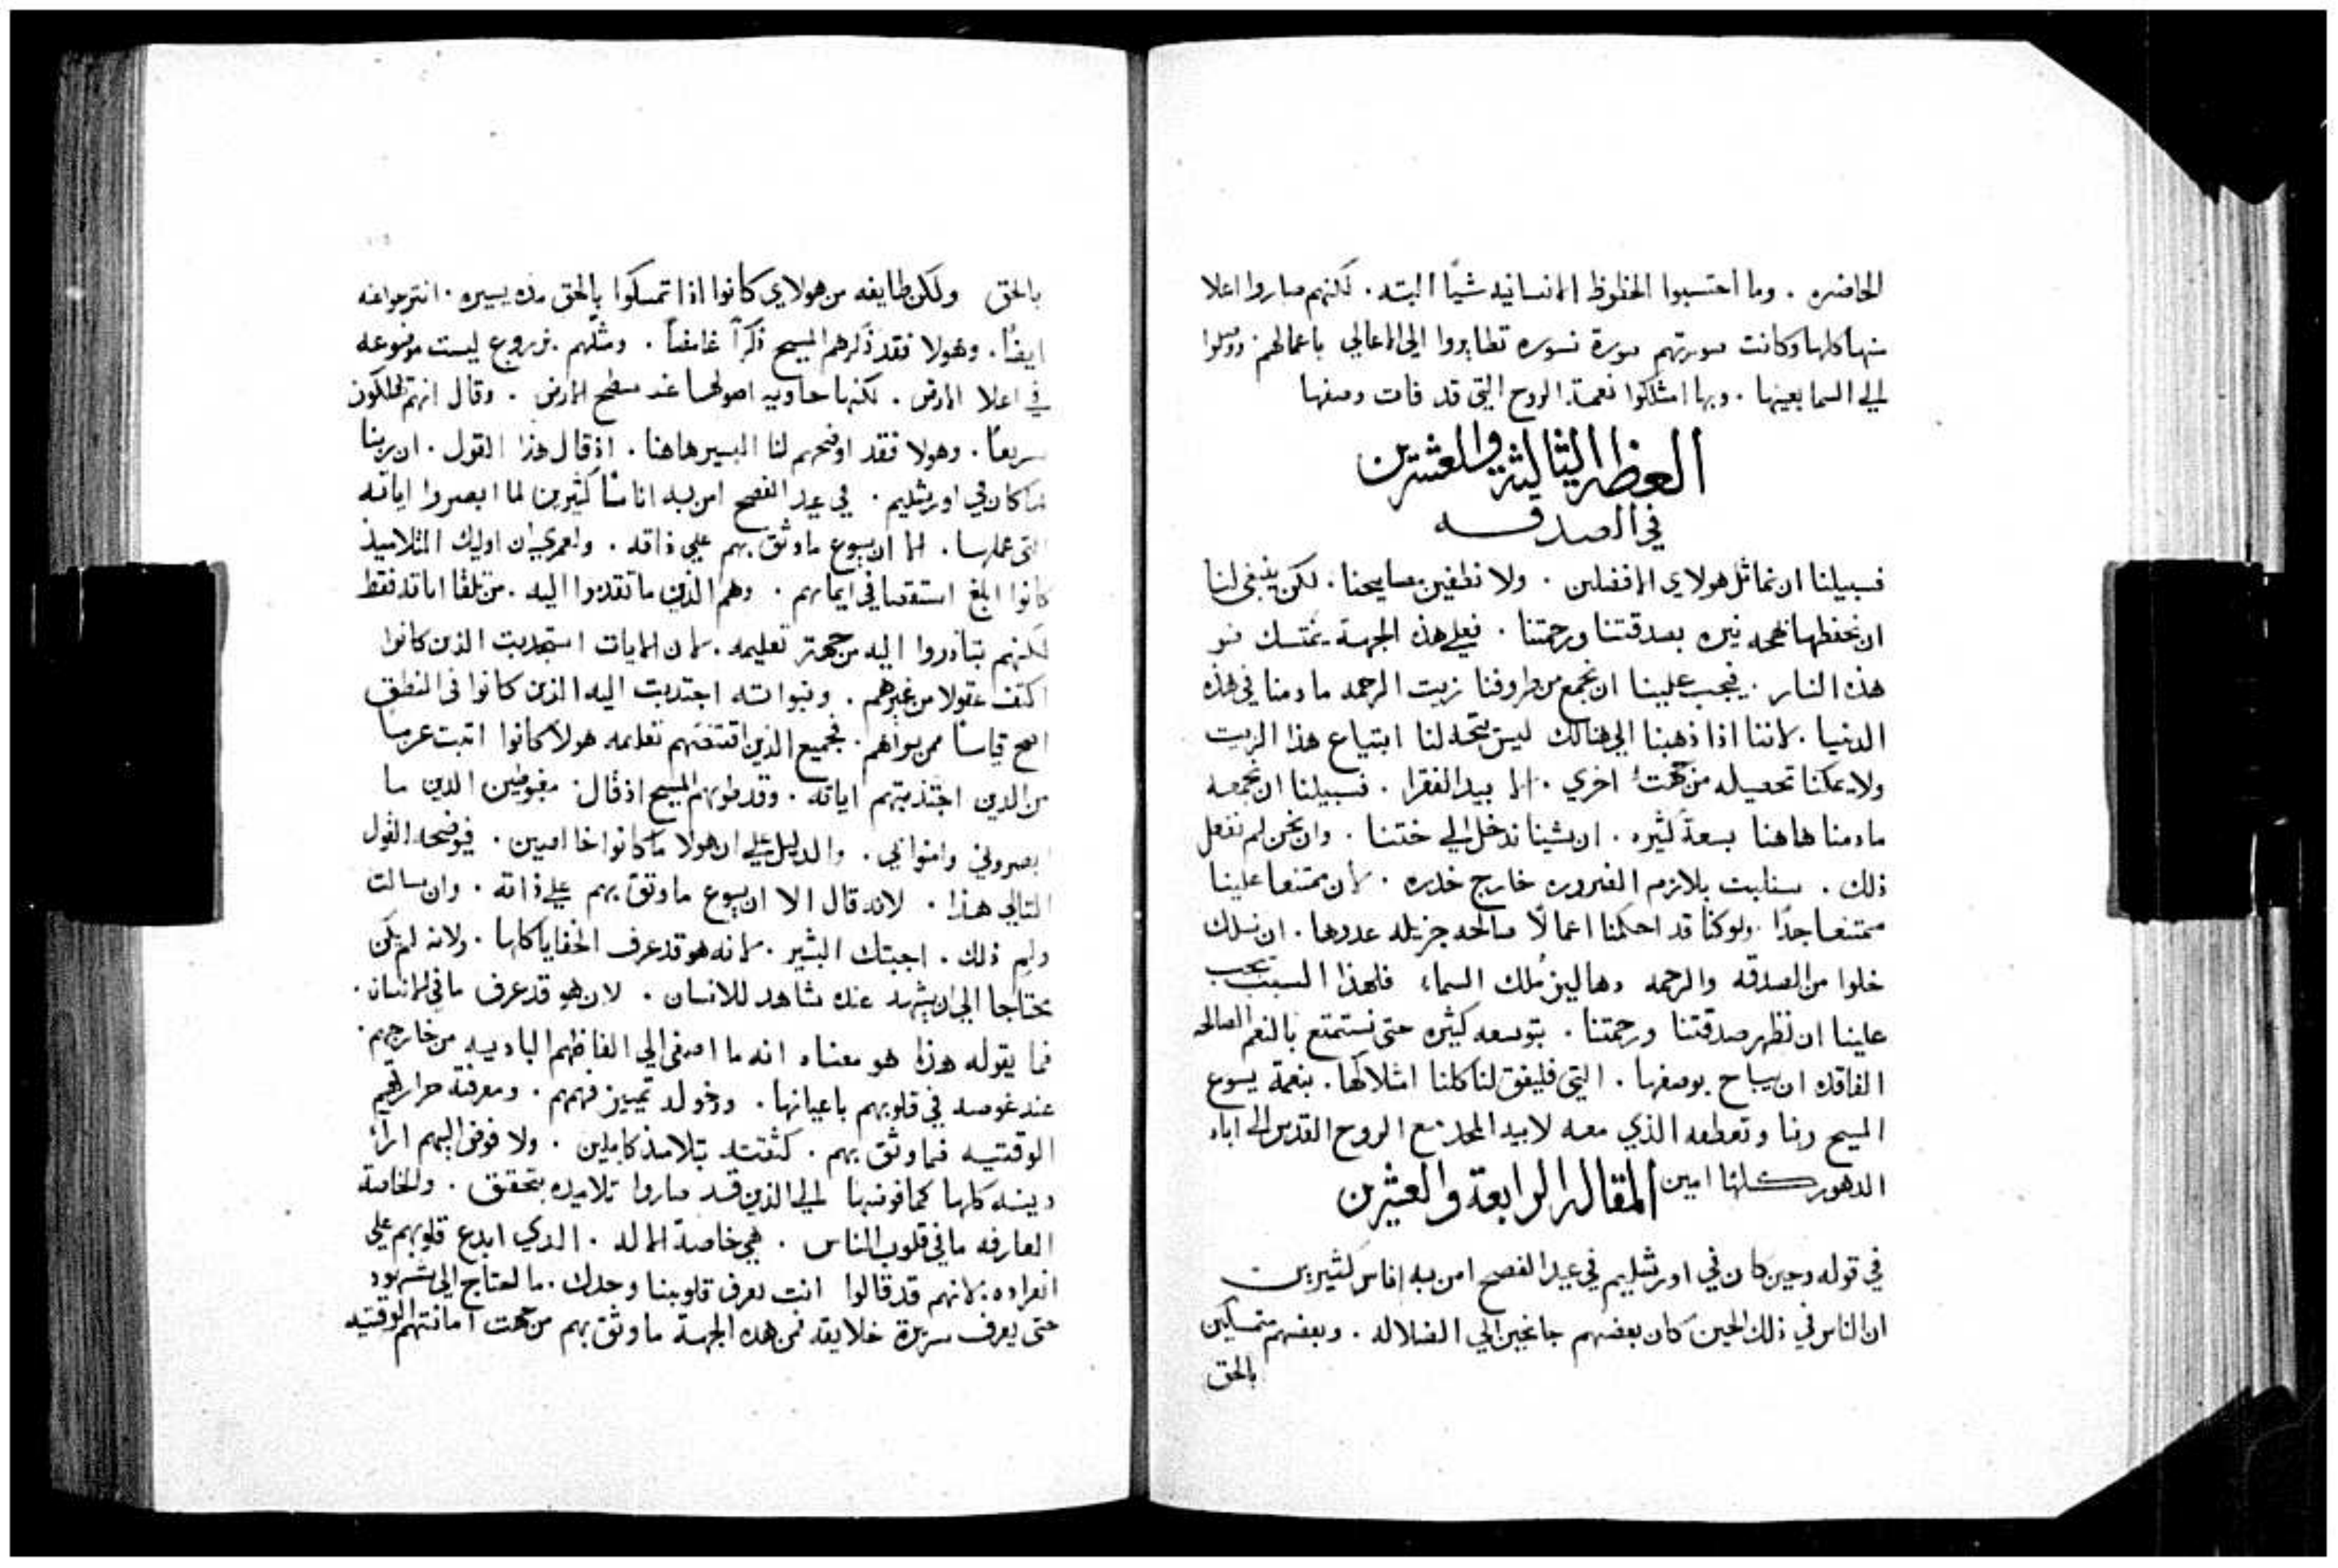 الحاضره . وما احتسبوا الحظوظ الانسانيه شيًا البته . لكنهم صاروا اعلا
منها كلها وكانت صورتهم صورة نسوره تطايروا الي المعالي باعمالهم ووصلوا
الي السما بعينها . وبها امتلكوا نعمة الروح التي قد فات وصفها
العظه الثالثة والعشرين
في الصدقه
فسبيلنا ان نماثل هولاي الافضلين . ولا نطفين مصابيحنا . لكن ينبغي لنا
ان نحفظها بهجه نيره بصدقتنا ورحمتنا . فعلي هذه الجهة يتمسك ضو
هذه النار . فيجب علينا ان نجمع من ظروفنا زيت الرحمه ما دمنا في هذه
الدنيا . لاننا اذا ذهبنا الي هنالك ليس يتجه لنا ابتياع هذا الزيت
ولا يمكنا تحصيله من جهت اخري . الا بيد الفقرا . فسبيلنا ان نجمعه
ما دمنا هاهنا بسعة كثيره . ان شينا ندخل الي ختننا . وان نحن لم نفعل
ذلك . سنلبت بلازم الضروره خارج خدره . لان ممتنعا علينا
ممتنعا جدًا ولو كنا قد احكمنا اعمالًا صالحه جزيله عددها . ان نسلك
خلوا من الصدقه والرحمه دهاليز ملك السماء فلهذا السبب يجب
علينا ان نظهر صدقتنا ورحمتنا . بتوسعه كثيره حتي نستمتع بالنعم الصالحه
الفاقده ان يباح بوصفها . التي فليفق لنا كلنا امتلاكها . بنعمة يسوع
المسيح ربنا وتعطفه الذي معه لابيه المجد مع الروح القدس الي اباد
الدهور كلها امين المقاله الرابعة والعشرين
في قوله وحين كان في اورشليم في عيد الفصح امن به اناس كثيرين
ان الناس في ذلك الحين كان بعضهم جانحين الي الضلاله . وبعضهم متمسكين
بالحق
بالحق ولكن طايفه من هولاي كانوا اذا تمسكوا بالحق مده يسيره . انتزعوا عنه
ايضًا . وهولا فقد ذكرهم المسيح ذكرًا غامضًا . ومثلهم بزروع ليست موضوعه
في اعلا الارض . لكنها حاويه اصولها عند سطح الارض . وقال انهم يهلكون
سريعًا . وهولا فقد اوضحهم لنا البشير هاهنا . اذ قال هذا القول . ان ربنا
لما كان في اورشليم . في عيد الفصح امن به اناسًا كثيرين لما ابصروا اياته
التي عملها . الا ان يسوع ما وثق بهم علي ذاته . ولعمري ان اوليك التلاميذ
كانوا ابلغ استقصا في ايمانهم . وهم الذين ما تقدموا اليه . من تلقا اياته فقط
لكنهم تبادروا اليه من جهة تعليمه . لان الايات استجدبت الذين كانوا
اكثف عقولا من غيرهم . ونبواته اجتدبت اليه الذين كانوا في النطق
اصح قياسًا ممن سواهم . فجميع الذين اقتنصهم تعليمه هولا كانوا اثبت عزمًا
من الذين اجتذبتهم اياته . وقد طوبهم المسيح اذ قال . مغبوطين الذين ما
ابصروني وامنوا بي . والدليل علي ان هولا ما كانوا خالصين . فيوضحه القول
التالي هذا . لانه قال الا ان يسوع ما وثق بهم علي ذاته . وان سالت
ولم ذلك . اجبتك البشير . لانه هو قد عرف الخفايا كلها . ولانه لم يكن
محتاجا الي ان يشهد عنده شاهد للانسان . لان هو قد عرف ما في الانسان .
فما يقوله هذا هو معناه انه ما اصغي الي الفاظهم الباديه من خارجهم .
عند غوصه في قلوبهم باعيانها . ودخوله تمييز فهمهم . ومعرفته حرارتهم
الوقتيه فما وثق بهم . كثقته بتلاميذ كاملين . ولا فوض اليهم اراء
دينه كلها كما فوضها الي الذين قد صاروا تلاميده بتحقيق . والخاصة
العارفه ما في قلوب الناس . هي خاصة الاله . الدي ابدع قلوبهم علي
انفراده . لانهم قد قالوا انت تعرف قلوبنا وحدك . ما احتاج الي شهود
حتي يعرف سريرة خلايقه فمن هذه الجهة ما وثق بهم من جهت امانتهم الوقتيه